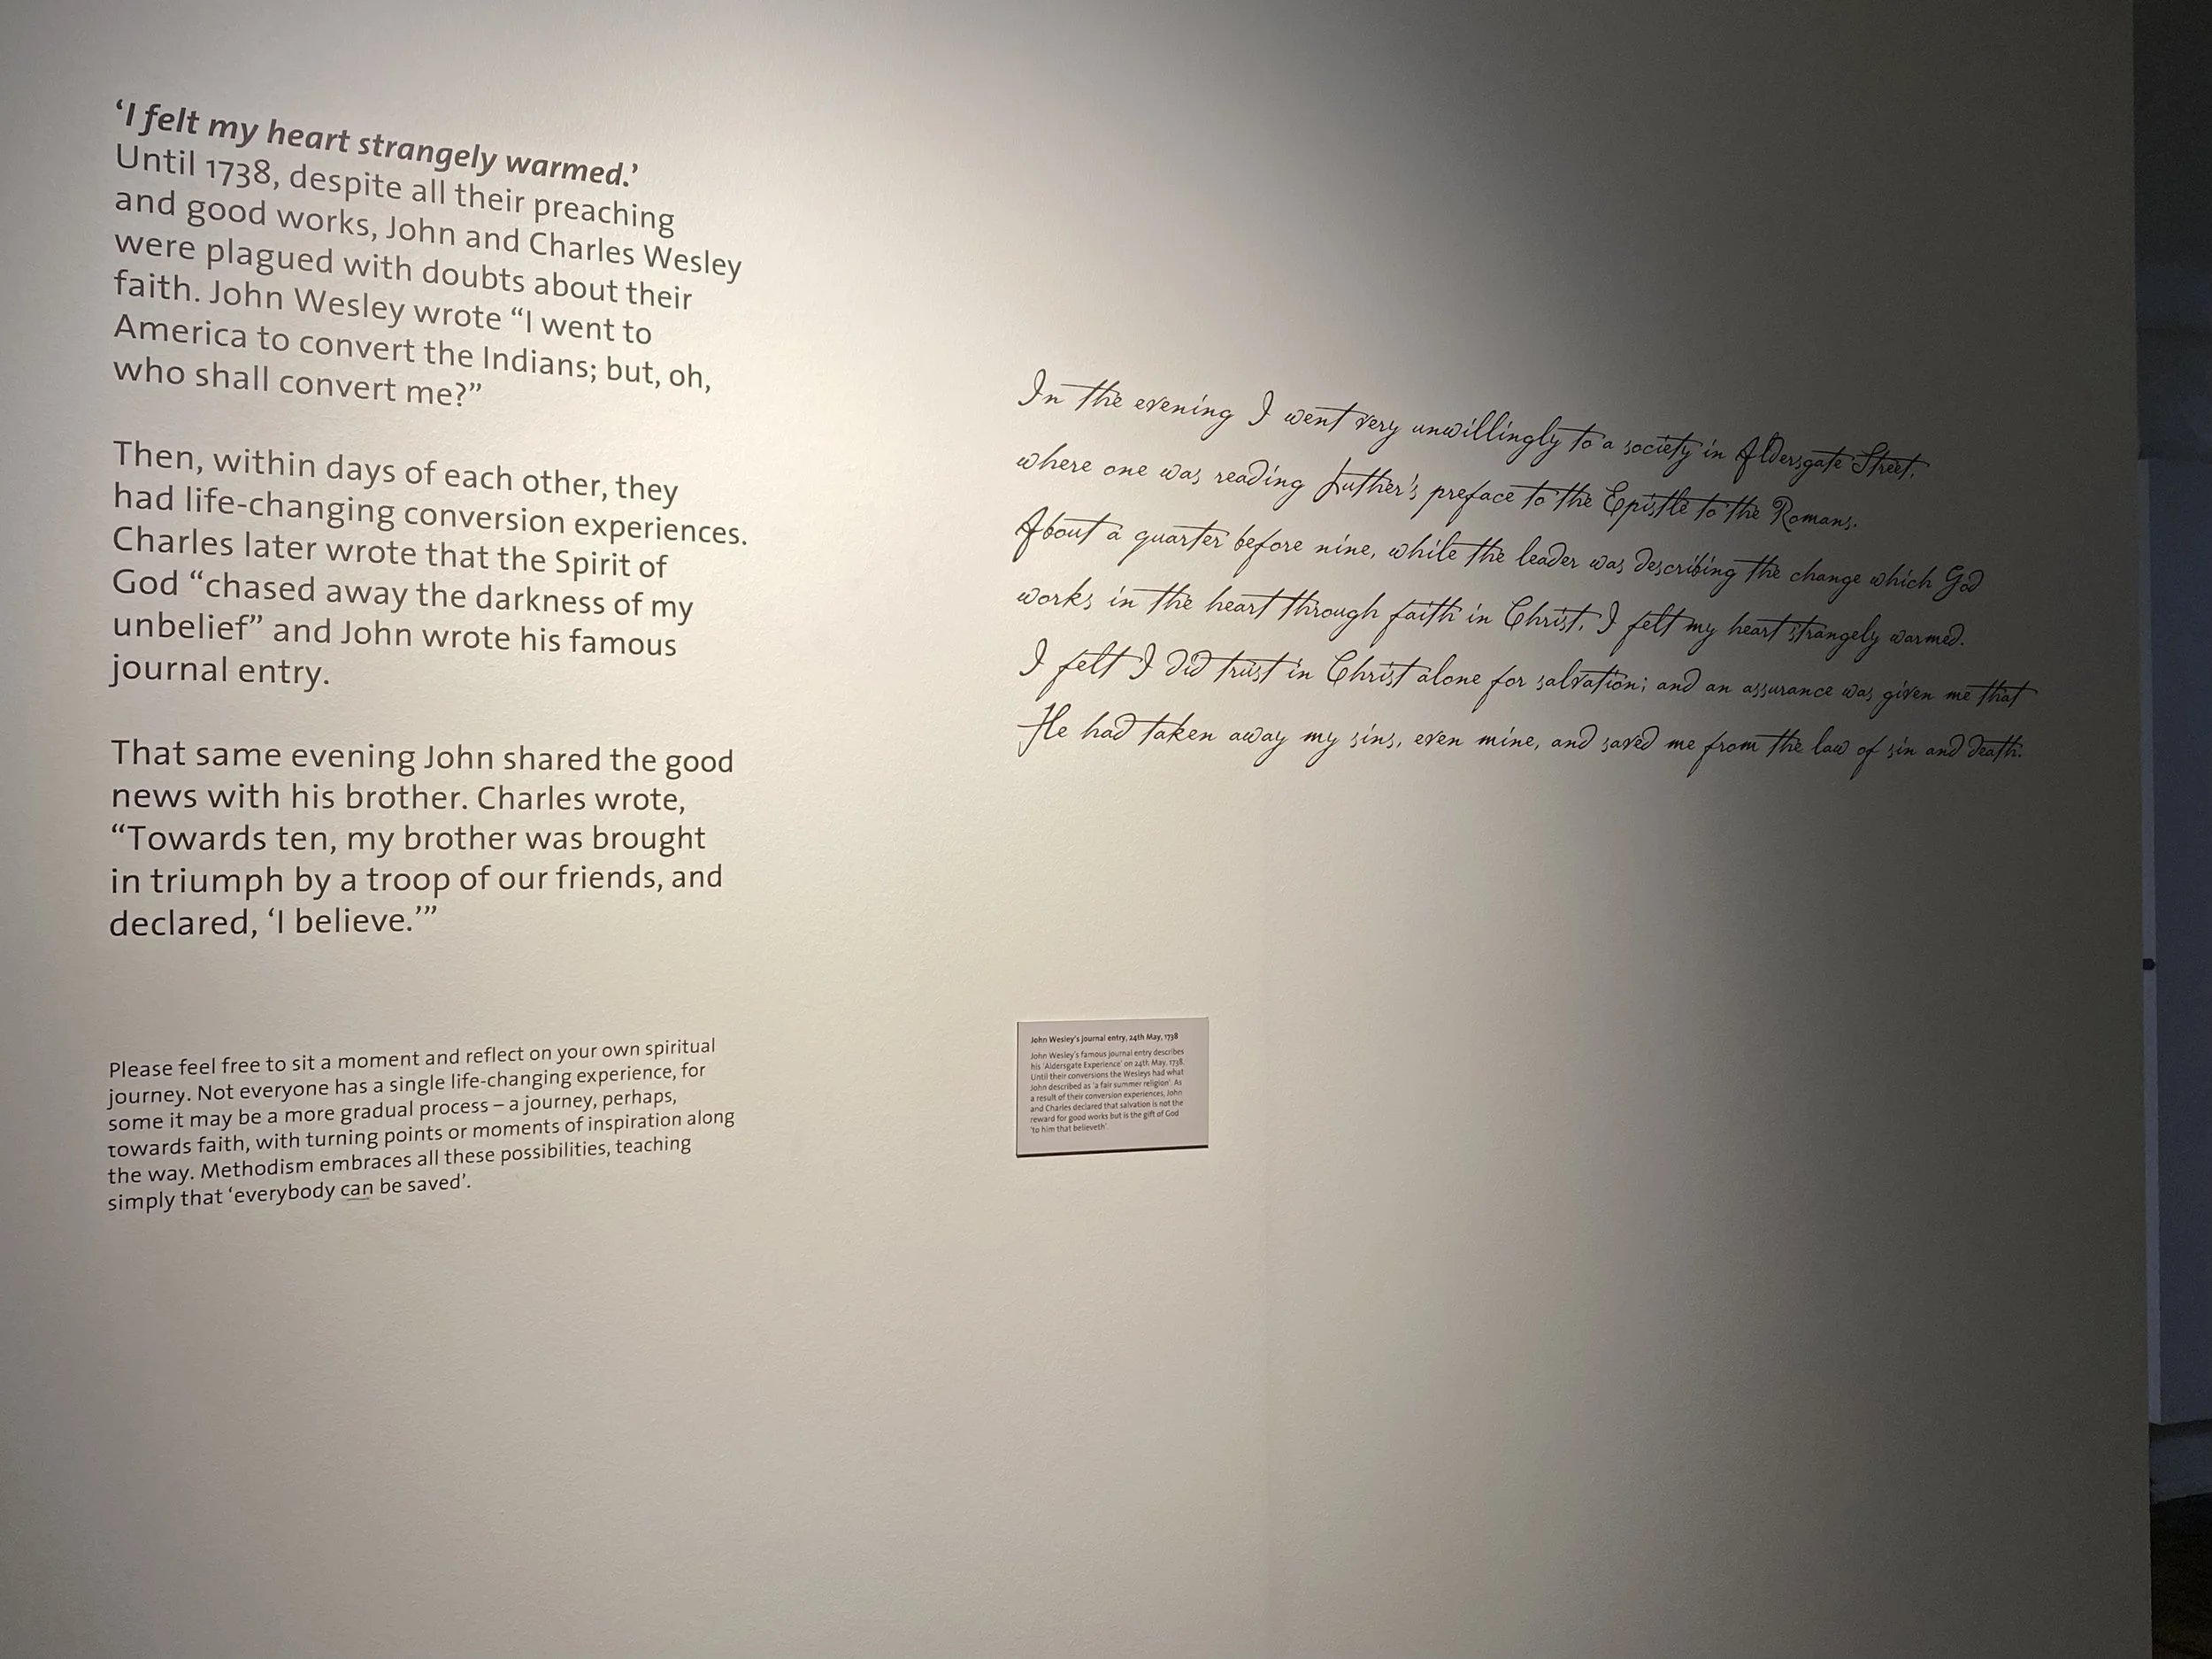 ‘I felt my heart strangely warmed.’
Until 1738, despite all their preaching
and good works, John and Charles Wesley
were plagued with doubts about their
faith. John Wesley wrote “I went to
America to convert the Indians; but, oh,
who shall convert me?”
Then, within days of each other, they
had life-changing conversion experiences.
Charles later wrote that the Spirit of
God “chased away the darkness of my
unbelief” and John wrote his famous
journal entry.
That same evening John shared the good
news with his brother. Charles wrote,
“Towards ten, my brother was brought
in triumph by a troop of our friends, and
declared, ‘I believe.’”
Please feel free to sit a moment and reflect on your own spiritual
journey. Not everyone has a single life-changing experience, for
some it may be a more gradual process – a journey, perhaps,
towards faith, with turning points or moments of inspiration along
the way. Methodism embraces all these possibilities, teaching
simply that ‘everybody can be saved’.
In the evening I went very unwillingly to a society in Aldersgate Street,
where one was reading Luther's preface to the Epistle to the Romans.
About a quarter before nine, while the leader was describing the change which God
works in the heart through faith in Christ, I felt my heart strangely warmed.
I felt I did trust in Christ alone for salvation; and an assurance was given me that
He had taken away my sins, even mine, and saved me from the law of sin and death.
John Wesley's journal entry, 24th May, 1738
John Wesley's famous journal entry describes
his ‘Aldersgate Experience’ on 24th May, 1738.
Until their conversions the Wesleys had what
John described as ‘a fair summer religion’. As
a result of their conversion experiences, John
and Charles declared that salvation is not the
reward for good works but is the gift of God
‘to him that believeth’.